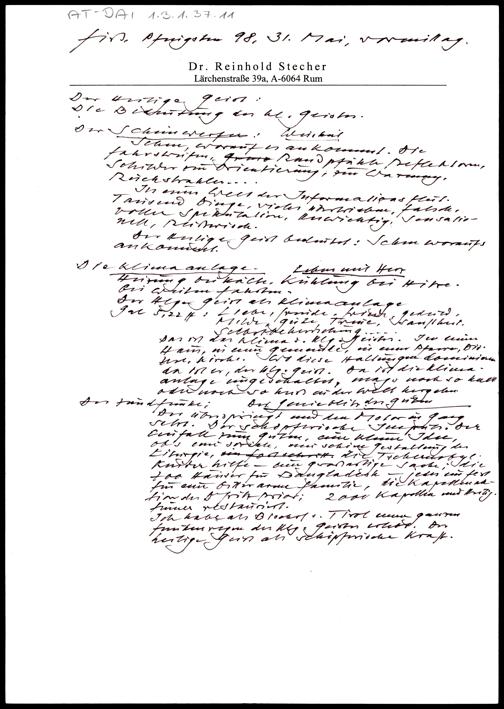 AT-DAI 1.3.1.37.11
Firm. Pfingsten 98, 31. Mai, vormittag.
Dr. Reinhold Stecher
Lärchenstraße 39a, A-6064 Rum
Der Heilige Geist:
Die Bedeutung des hl. Geistes.
Der Scheinwerfer: Weisheit
Sehen, worauf es ankommt. Die
Fahrstreifen, Randpfähle Reflektoren,
Schilder zur Orientierung, zur Warnung.
Rückstrahler....
In einer Welt der Informationsflut.
Tausend Dinge, vieles übertrieben, falsch,
voller Spekulation, unwichtig, sensatio-
nell,
Der Heilige Geist bedeutet: Sehen worauf es
ankommt.
Die Klimaanlage. Leben mit Herz
Heizung bei Kälte, Kühlung bei Hitze.
bei weiten Fahrten.
Der Hlge Geist als Klimaanlage
Gal 5,22 ff: Liebe, Freude, Friede, Geduld,
Milde, Güte, Treue, Sanftmut,
Selbstbeherrschung....
Das ist das Klima d. Hlg. Geistes. In einem
Haus, in einer Gemeinde, in einer Pfarre, Diö-
zese, Kirche. Wo diese Haltungen dominieren
da ist er, der Hlg. Geist. Da ist die Klima-
anlage eingeschaltet, mag's noch so kalt
oder noch so heiß in der Welt hergehen
Der Zündfunke:
Der überspringt und den Motor in Gang
setzt. Der schöpferische Impuls. Der
Einfall zum Guten, eine kleine Idee,
ob's eine soziale, eine schöne Gestaltung der
Liturgie, die Tschernobyl-
Kinder hilfe – eine großartige Sache, die
Häuser für Bangladesch – jedes ein Fest
für eine bitterarme Familie, die Kapellenak-
tion des
restauriert.
Ich habe als Bischof v. Tirol einen ganzen
Funkenregen des Hlg. Geistes erlebt. Der
Heilige Geist als schöpferische Kraft.